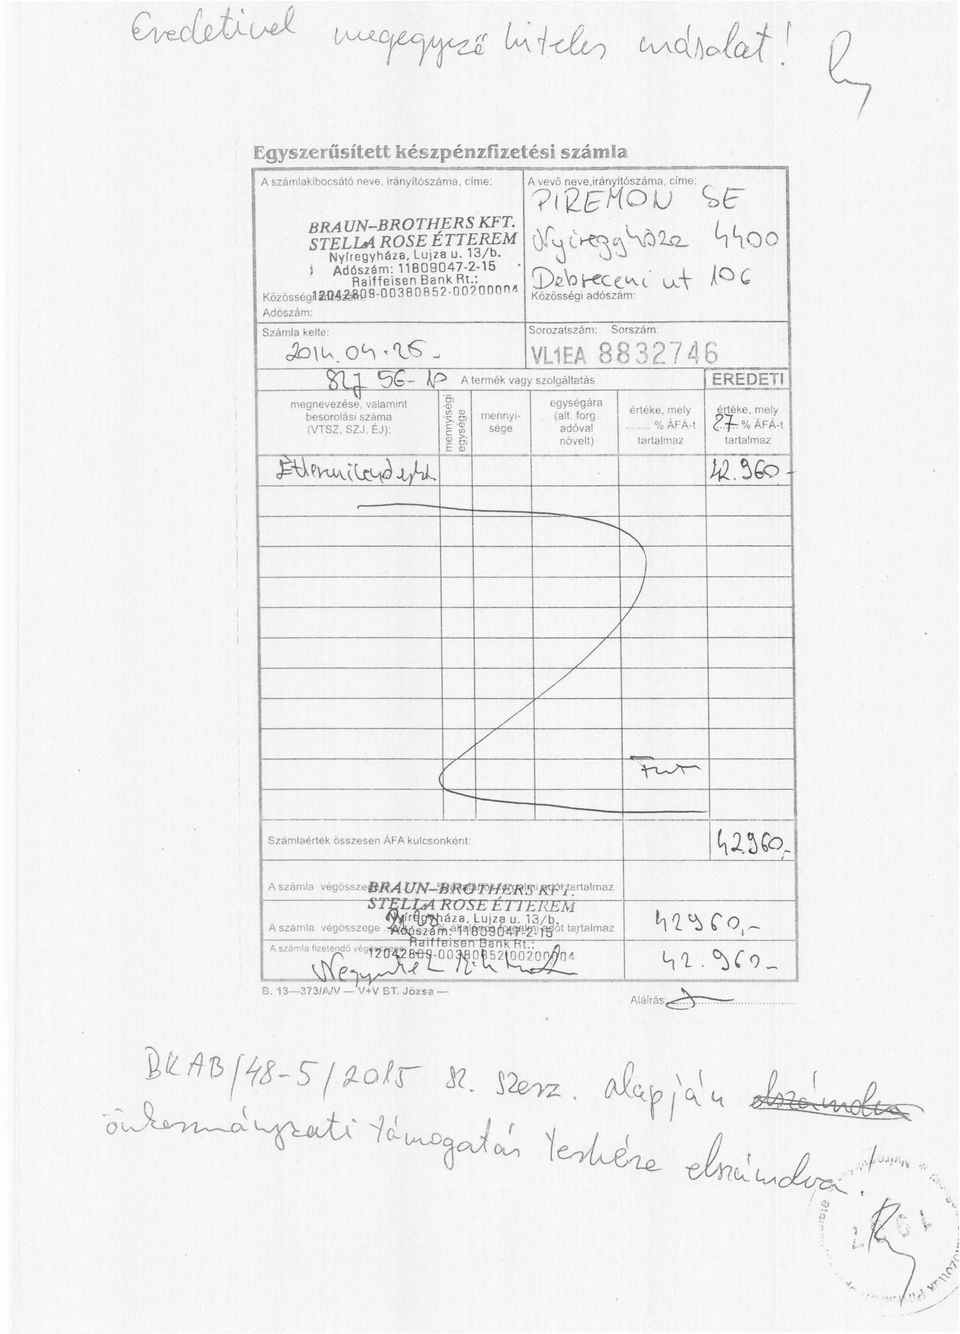 Eredetivel megegyező hiteles másolat!
Egyszerűsített készpénzfizetési számla
A számlakibocsátó neve, irányítószáma, címe:
BRAUN-BROTHERS KFT.
STELLA ROSE ÉTTEREM
Nyíregyháza, Lujza u. 13/b.
Adószám: 11809047-2-15
Raiffeisen Bank Rt.:
12042809-00380852-00200004
Adószám:
A vevő neve,irányítószáma, címe:
PIREMON SE
Nyíregyháza 4400
Debreceni út 106
Közösségi adószám:
Számla kelte:
2014. 04. 25.
Sorozatszám: Sorszám:
VL1EA 8832746
SZJ 56-
A termék vagy szolgáltatás
EREDETI
megnevezése, valamint
besorolási száma
(VTSZ, SZJ, ÉJ):
mennyiségi
egysége
mennyi-
sége
egységára
(alt. forg.
adóval
növelt)
értéke, mely
........ % ÁFÁ-t
tartalmaz
értéke, mely
27 % ÁFÁ-t
tartalmaz
42.960-
Számlaérték összesen ÁFA kulcsonként:
42960,-
A számla végösszege
tartalmaz
BRAUN-BROTHERS KFT.
STELLA ROSE ÉTTEREM
Nyíregyháza, Lujza u. 13/b.
A számla végösszege
tartalmaz
42960,-
Adószám: 11809047-2-15
Raiffeisen Bank Rt.:
A számla fizetendő végösszege
12042809-00380852-00200004
42.960-
B. 13—373/A/V — V+V BT. Józsa —
Aláírás:
BKAB/48-5/2015 sz. szerz. alapján elszámolva
önkormányzati támogatás terhére elszámolva.